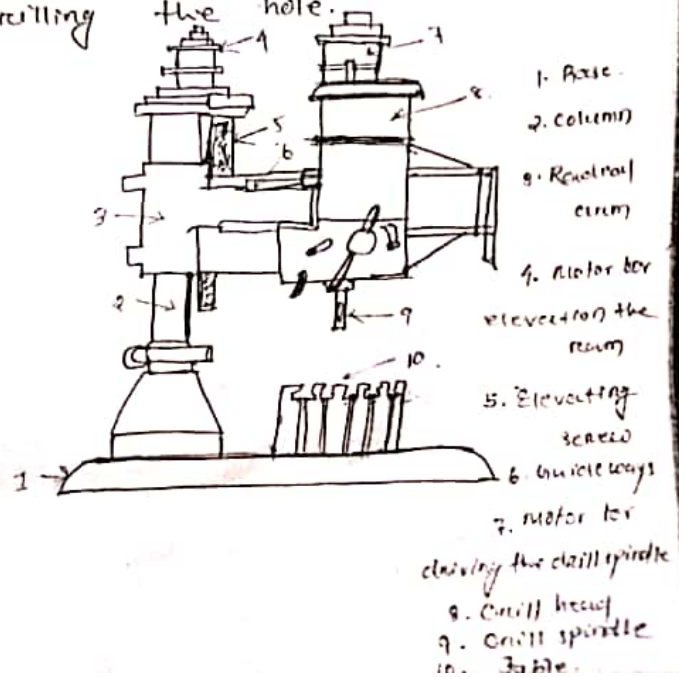 drilling the hole.
4
7
8
5
6
3
2
9
10
1
1. Base.
2. column
3. Readrial
arm
4. Motor for
elevation the
ream
5. Elevating
screw
6. Guideways
7. Motor for
driving the drill spindle
8. Drill head
9. Drill spindle
10. Table.